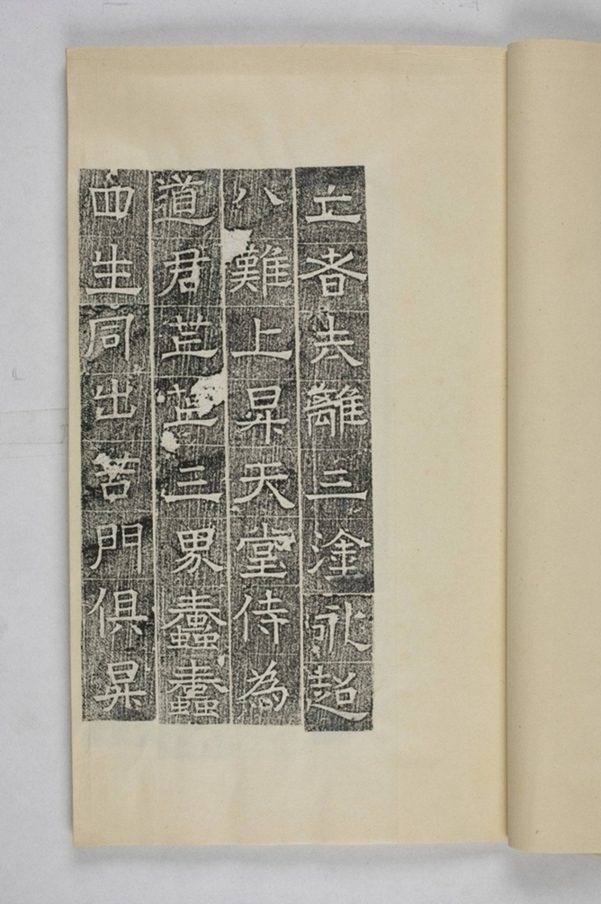 亡者去離三塗永超
八難上昇天堂侍為
道君茫茫三界蠢蠢
四生同出苦門俱昇